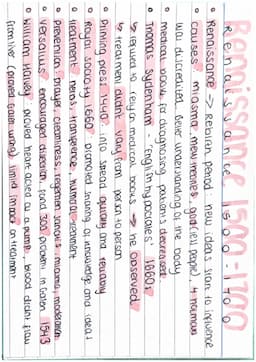 Renaissance 1500-1700
Renaissance 1500 1700
Renaissance → rebirth period new ideas start to influence
causes: miasma, new theories, god (few people), 4 humours
was discredited, better understanding of the body
medical books for diagnosing patients decreased
Thomas Sydenham - 'English hypocrates' 1660s
↳ refused to rely on medical books → he observed
↳ treatment didn't vary from person to person
Printing press 1440: info spread quickly and reliably
Royal society 1660: promoted sharing of knowledge and ideas!
treatment: herbs, transference, humoral treatment
Prevention: Prayer, cleanliness, regimen sanitatis, miasma, moderation
Versalius: encouraged dissection, found 300 problems in Galen 1543
William Harvey: proved heart acted as a pump, blood didn't flow
from liver (proved Galen wrong). limited impact on treatment